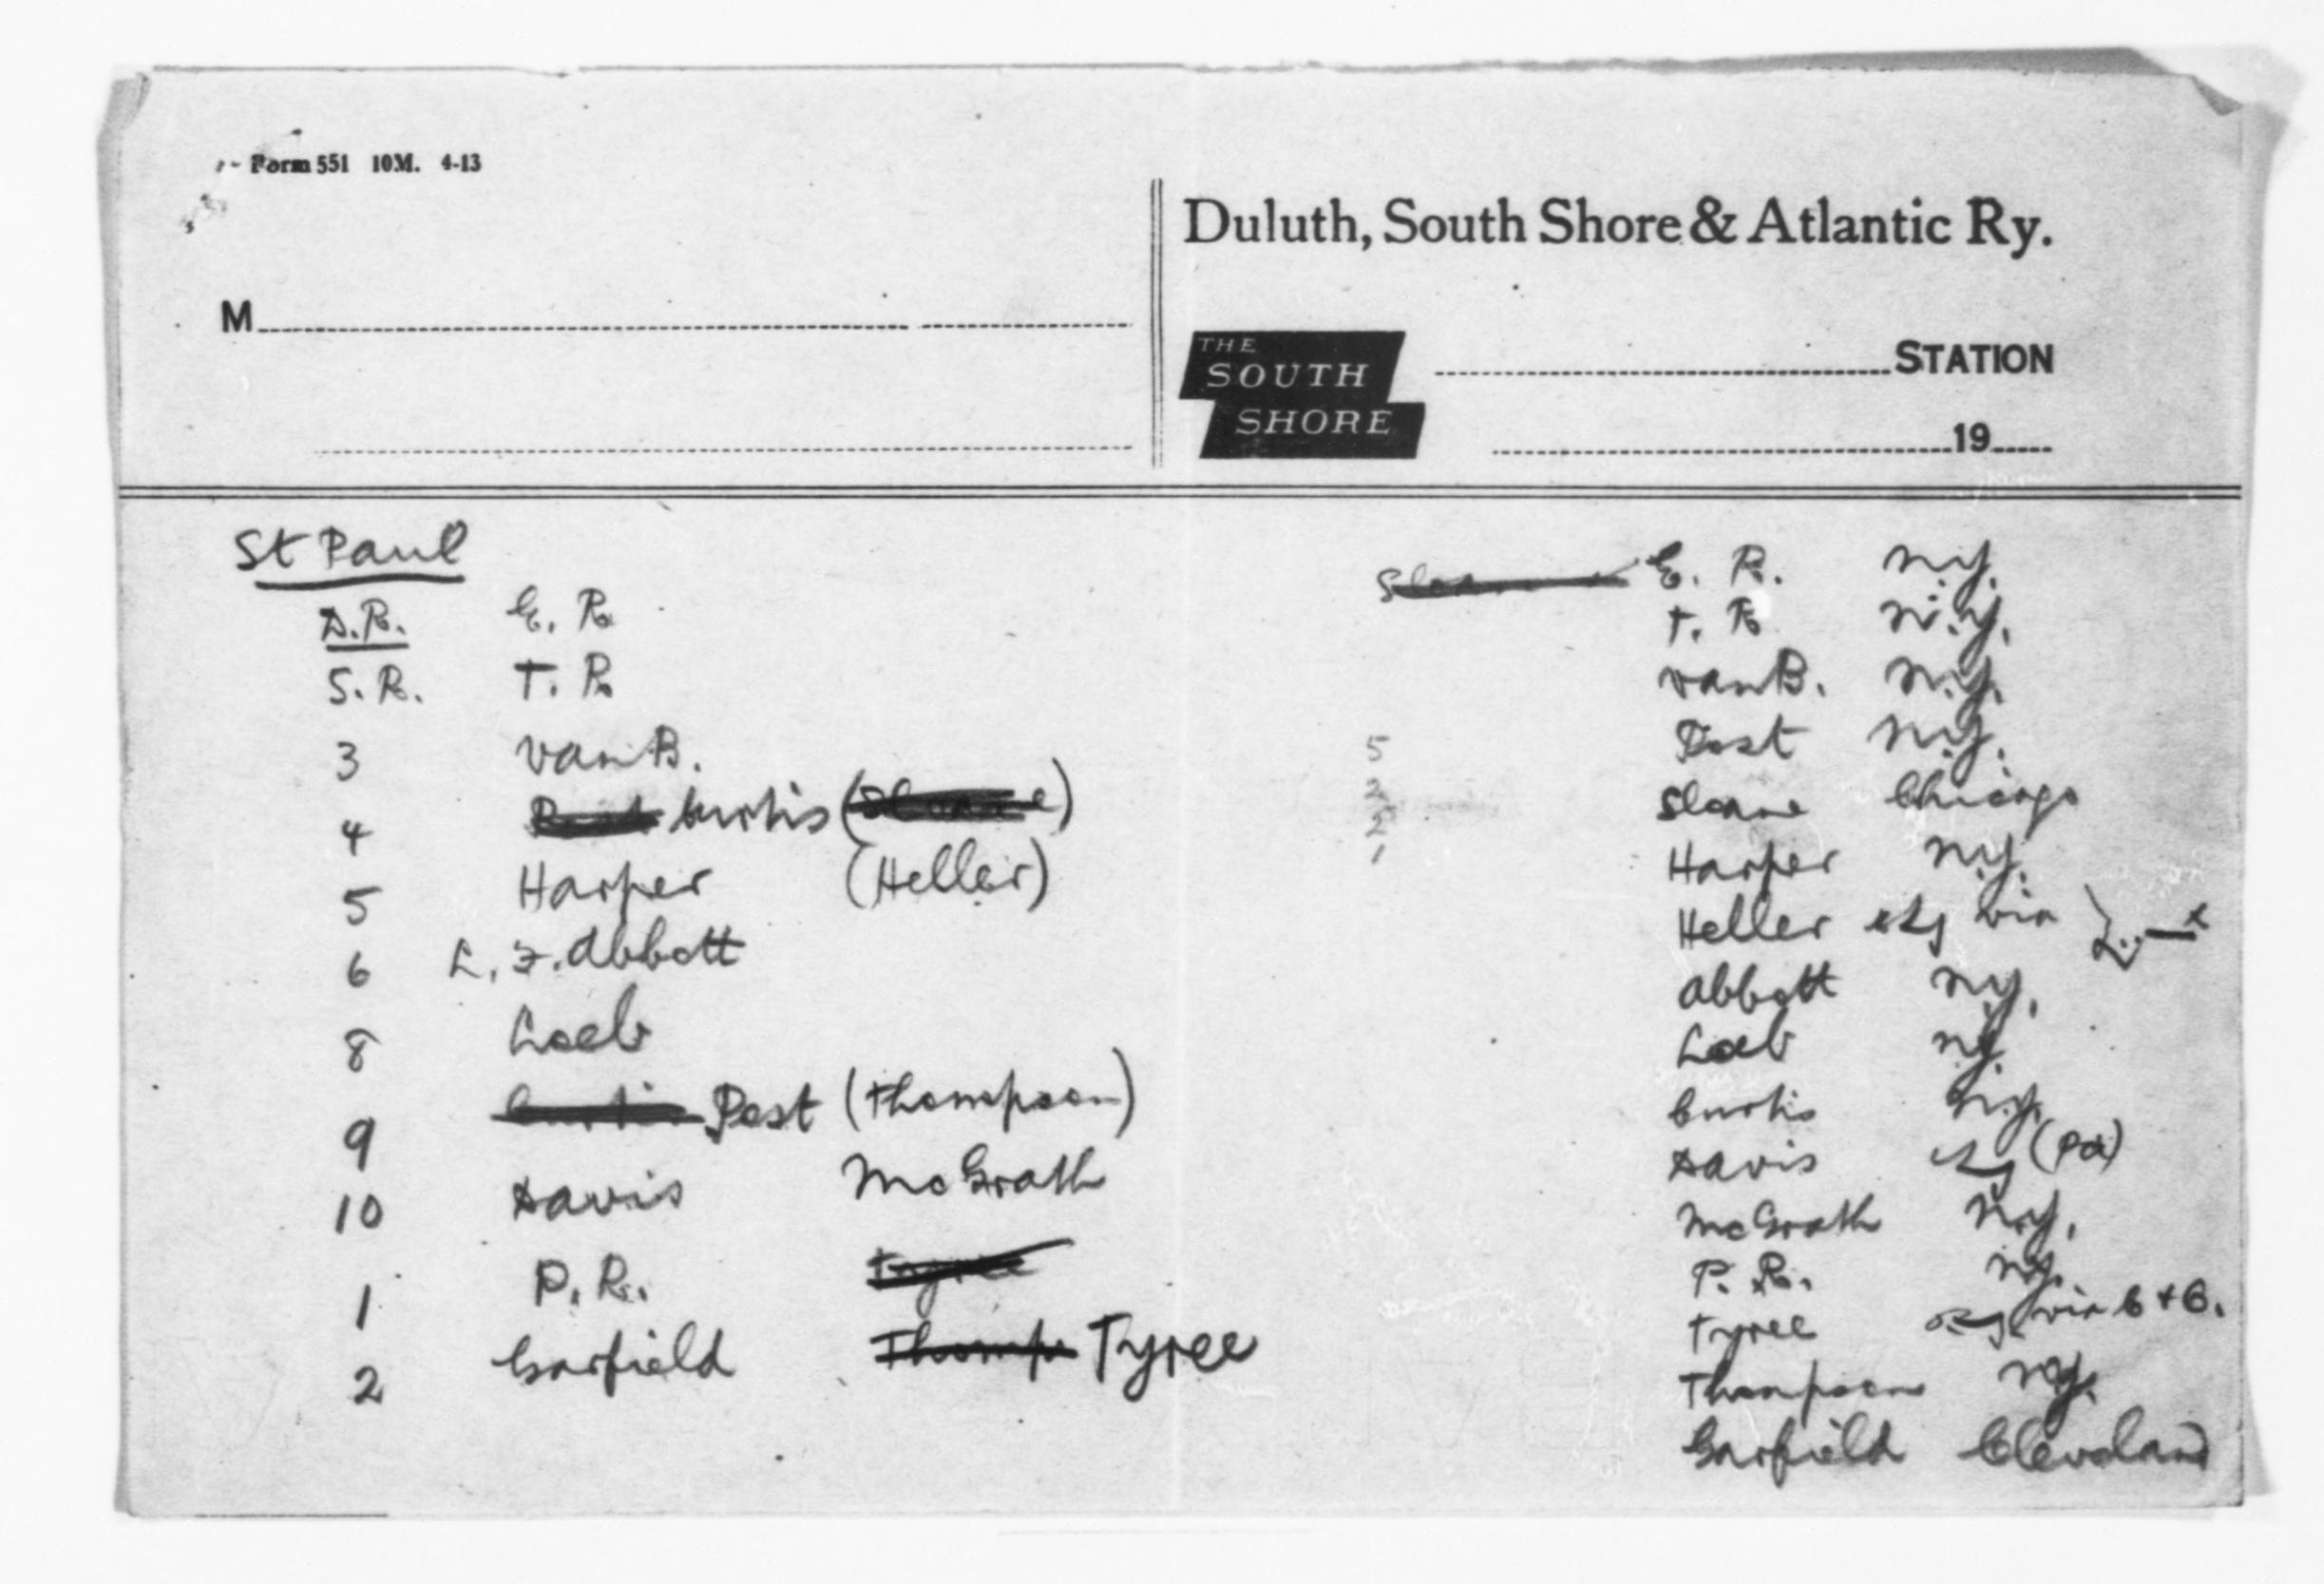 Form 551 10M. 4-13
Duluth, South Shore & Atlantic Ry.
M
THE
SOUTH
SHORE
STATION
19
St Paul
D.R. E. R
S. R. T. R
3 Van B.
4 Post Curtis (Sloane)
5 Harper (Heller)
6 L. F. Abbott
8 Loeb
9 Curtis Post (Thompson)
10 Davis McGrath
1 P. R. Tyree
2 Garfield Thomps Tyree
5
2
1
Sloane E. R. N.Y.
T. R N.Y.
Van B. N.Y.
Post N.Y.
Sloane Chicago
Harper N.Y.
Heller via
Abbott N.Y.
Loeb N.Y.
Curtis N.Y.
Davis (Pa)
McGrath N.Y.
P. R. N.Y.
Tyree via C + O.
Thompson N.Y.
Garfield Cleveland